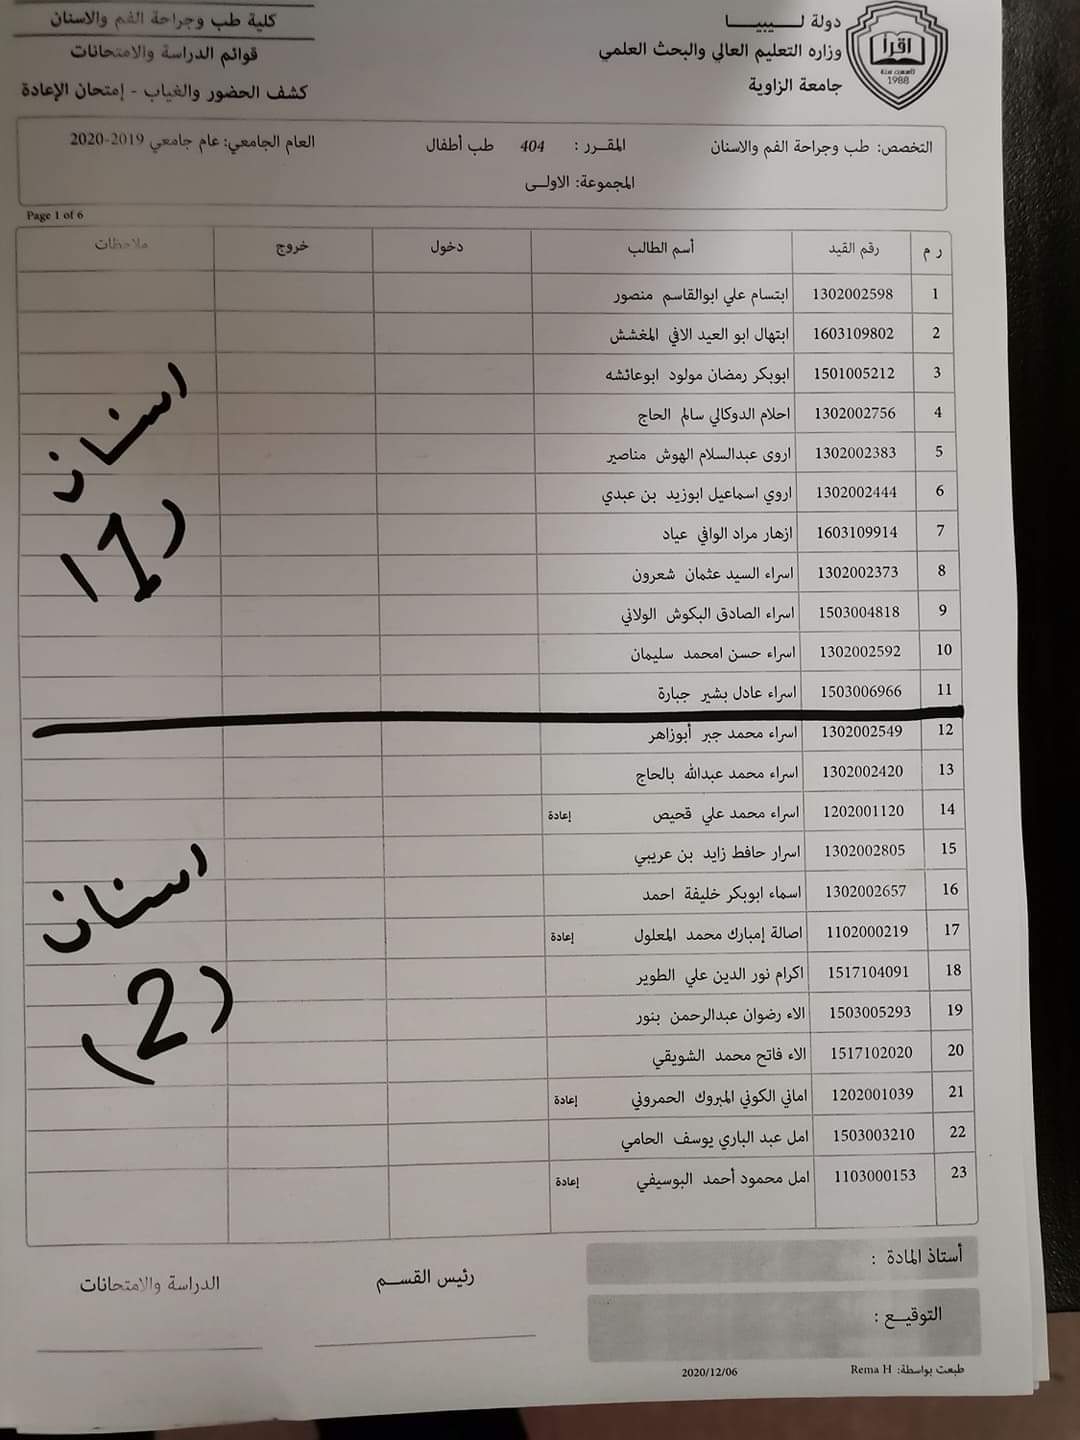 دولة لـــيـبـيـــا
وزاره التعليم العالي والبحث العلمي
جامعة الزاوية
اقرأ
1988
كلية طب وجراحة الفم والاسنان
قوائم الدراسة والامتحانات
كشف الحضور والغياب - إمتحان الإعادة
التخصص: طب وجراحة الفم والاسنان المقـــرر : 404 طب أطفال العام الجامعي: عام جامعي 2019-2020
المجموعة: الاولــى
Page 1 of 6
ر م رقم القيد أسم الطالب دخول خروج ملاحظات
1 1302002598 ابتسام علي ابوالقاسم منصور
2 1603109802 ابتهال ابو العيد الافي المغشش
3 1501005212 ابوبكر رمضان مولود ابوعائشه
4 1302002756 احلام الدوكالي سالم الحاج
5 1302002383 اروى عبدالسلام الهوش مناصير
6 1302002444 اروي اسماعيل ابوزيد بن عبدي
7 1603109914 ازهار مراد الوافي عياد
8 1302002373 اسراء السيد عثمان شعرون
9 1503004818 اسراء الصادق البكوش الولاني
10 1302002592 اسراء حسن امحمد سليمان
11 1503006966 اسراء عادل بشير جبارة
اسنان
(1)
12 1302002549 اسراء محمد جبر أبوزاهر
13 1302002420 اسراء محمد عبدالله بالحاج
14 1202001120 اسراء محمد علي قحيص إعادة
15 1302002805 اسرار حافظ زايد بن عريبي
16 1302002657 اسماء ابوبكر خليفة احمد
17 1102000219 اصالة إمبارك محمد المعلول إعادة
18 1517104091 اكرام نور الدين علي الطوير
19 1503005293 الاء رضوان عبدالرحمن بنور
20 1517102020 الاء فاتح محمد الشويقي
21 1202001039 اماني الكوني المبروك الحمروني إعادة
22 1503003210 امل عبد الباري يوسف الحامي
23 1103000153 امل محمود أحمد البوسيفي إعادة
اسنان
(2)
أستاذ المادة : رئيس القســم الدراسة والامتحانات
التوقيــع :
طبعت بواسطة: Rema H 2020/12/06